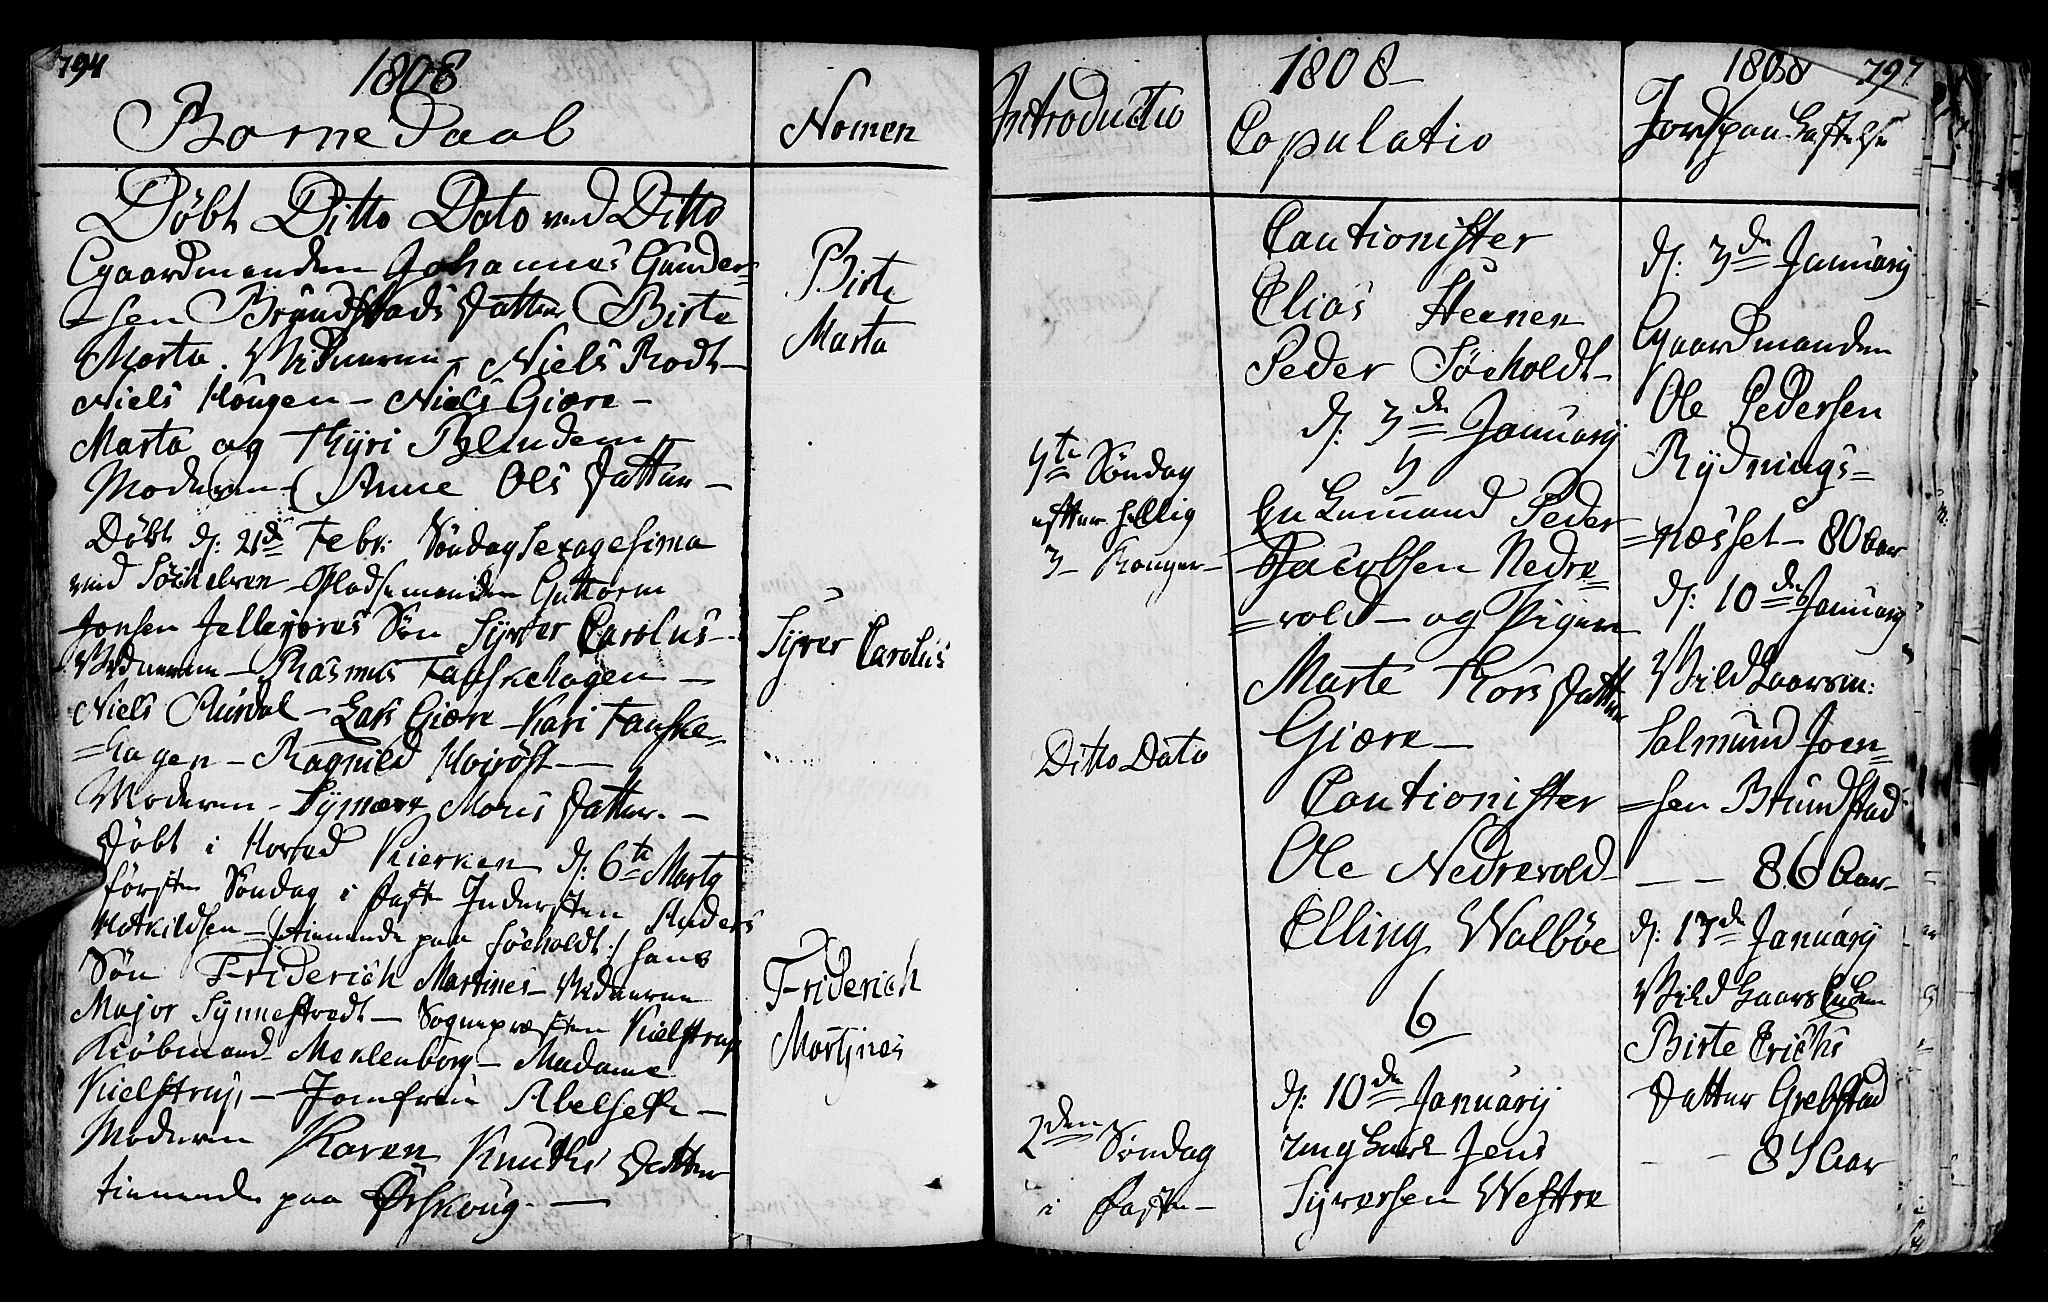 794
1808
Barne Daab
Nomen
Døbt Ditto Dato ved Ditto
Gaardmanden Johannes Gunder=
=sen Brundstads Datter Birte
Marta. Vidnerne – Niels Rodt –
Niels Hougen – Niels Giære –
Marta og Thyri Blindem
Moderen – Anne Ols Datter –
Birte
Marta
Døbt d: 21de Febr: Søndag Sexagesima
ved Søchelven – Pladsemanden Guttorm
Jonsen Søn Syver Carolus –
Vidnerne – Rasmus Fauskehagen –
Niels Aursdal – Lars Giære – Kari Fauske=
=hagen – Ragnild
Moderen – Synnøve Mons Datter. –
Syver Carolus
Døbt i Hoved Kierken d: 6te Marty
første Søndag i Faste Indersten Anders
tienende paa Søeholdt :/ hans
Søn Friderich Martines – Vidnerne
Major Synnestvedt – Sognepræsten Kielstrup
Kiøbmand Meklenborg – Madame
Kielstrup, – Jomfrue Abelseth –
Moderen Karen Knuths Datter
tienende paa Ørskoug. –
Friderich
Martines
Introductio
5te Søndag
efter hellig
3 – Konger –
Ditto Dato
2den Søndag
i Faste –
1808
Copulatio
Cautionister
Elias Steenen
Peder Søeholdt –
d: 3de January
5
Enkemand Peder
Jacobsen Nedre=
=vold – og Pigen
Marte Thors Datter
Giære –
Cautionister
Ole Nedrevold
Elling Walbøe
6
d: 10de January
ung Karl Jens
Syversen Westre
1808
797
Jordspaa Kastelse
d: 3de January
Gaardmanden
Ole Pedersen
Rydnings=
=næsset – 80 Aar
d: 10de January
Vilkaarsm:
Salmund Joen=
=sen Brundstad
– – 86 Aar –
d: 17de January
Vilkaars Enken
Birte Erichs
Datter Grebstad
– – 84 Aar